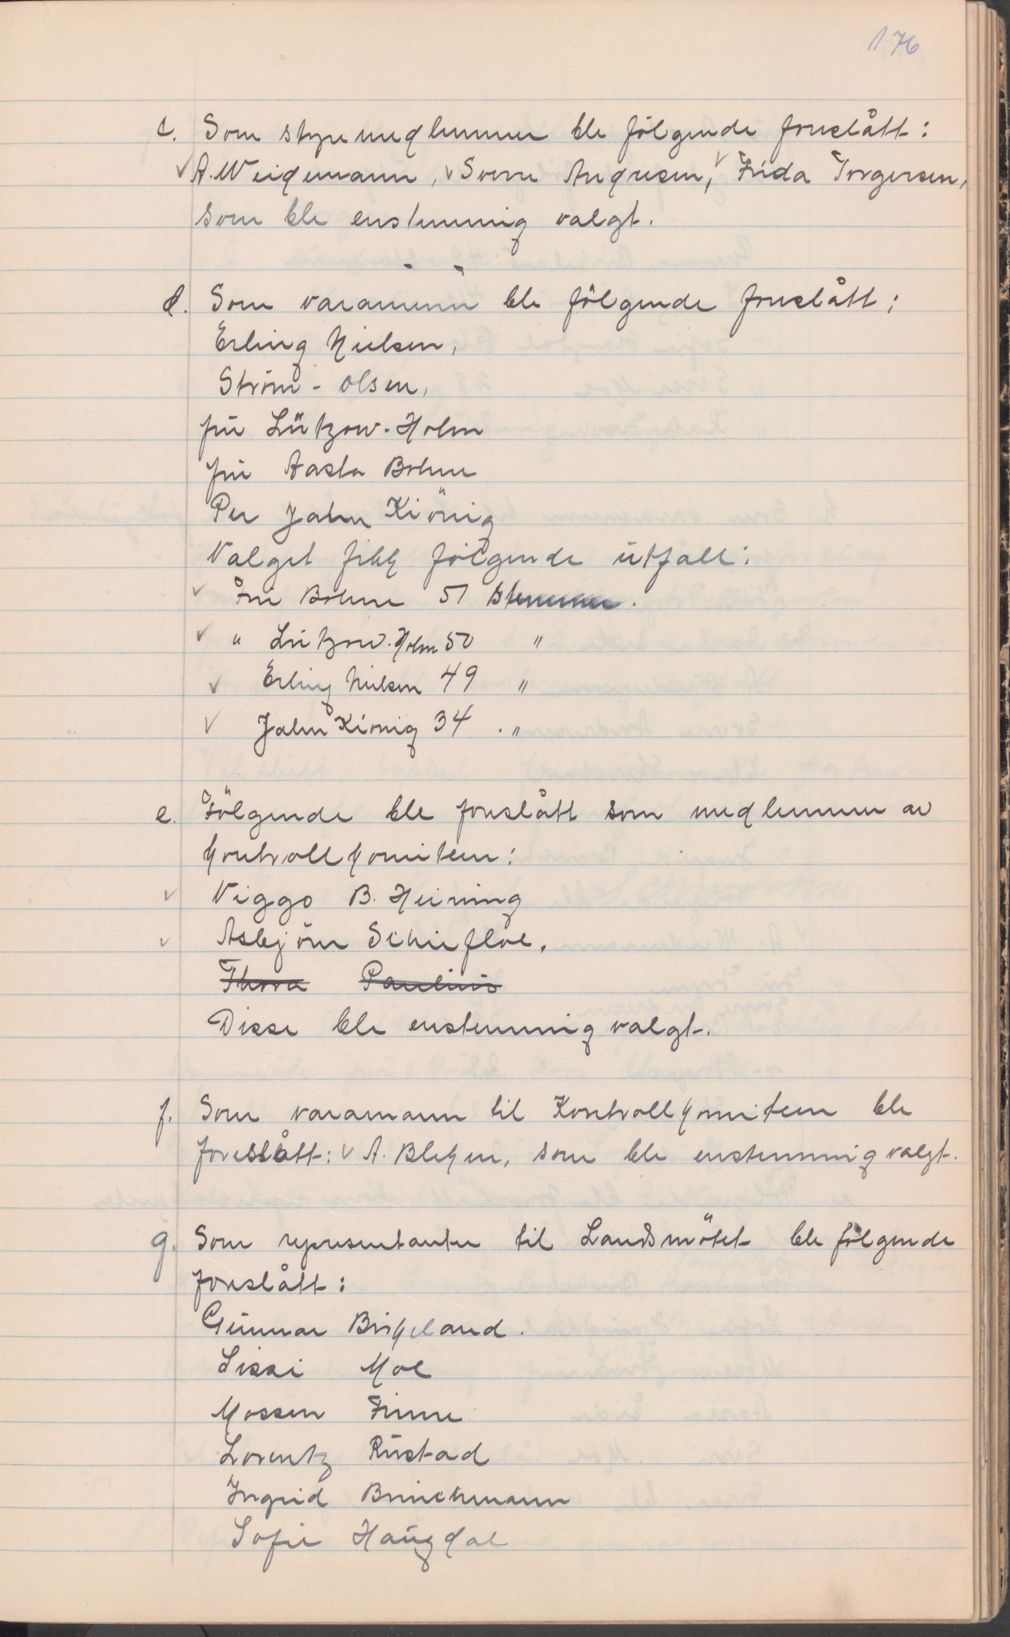 176
c. Som styremedlemmer ble følgende foreslått:
A. Weidemann, Sverre Andresen, Frida Torgersen,
som ble enstemmig valgt.
d. Som varamenn ble følgende foreslått:
Erling Nielsen,
Strøm-Olsen,
fru Lützow-Holm
fru Aasta Bohne
Per Jahn Kiønig
Valget fikk følgende utfall:
Fru Bohne 51 stemmer.
" Lützow-Holm 50 "
Erling Nielsen 49 "
Jahn Kiønig 34 "
e. Følgende ble foreslått som medlemmer av
kontrollkomiteen:
Viggo B. Heining
Asbjørn Schiefloe.
Thora Paulinis
Disse ble enstemmig valgt.
f. Som varamann til Kontrollkomiteen ble
foreslått: A. Bleken, som ble enstemmig valgt.
g. Som representanter til Landsmøtet ble følgende
foreslått:
Gunnar Birkeland.
Sissi Moe
Mossen Finne
Lorentz Rustad
Ingrid Brinchmann
Sofie Haugdal